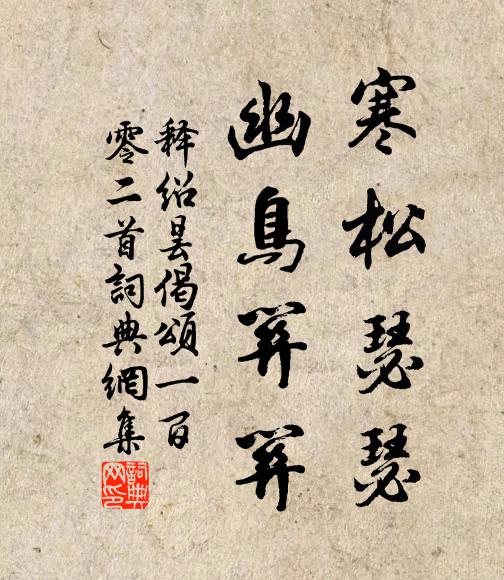 寒松瑟瑟
幽鳥關關
釋紹曇偈頌一百
零二首詞典網集
詞典
网印